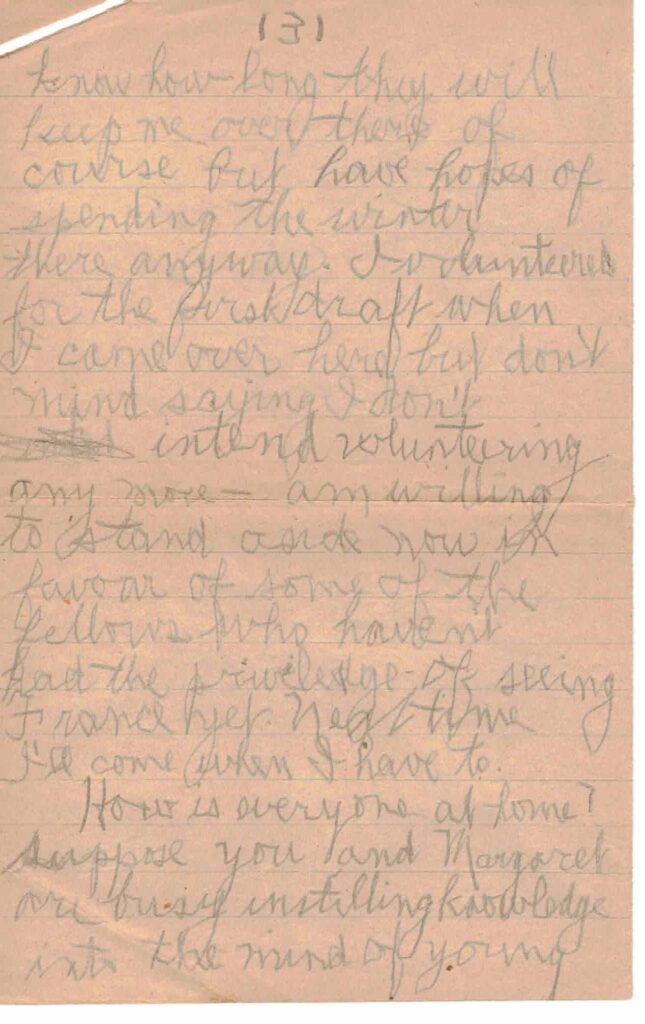 (3)
know how long they will
keep me over there of
course but have hopes of
spending the winter
there anyway. I volunteered
for the first draft when
I came over here but don't
mind saying I don't
intend volunteering
any more — am willing
to stand aside now in
favour of some of the
fellows who haven't
had the priviledge of seeing
France yet. Next time
I'll come when I have to.
How is everyone at home?
suppose you and Margaret
are busy instilling knowledge
into the mind of young